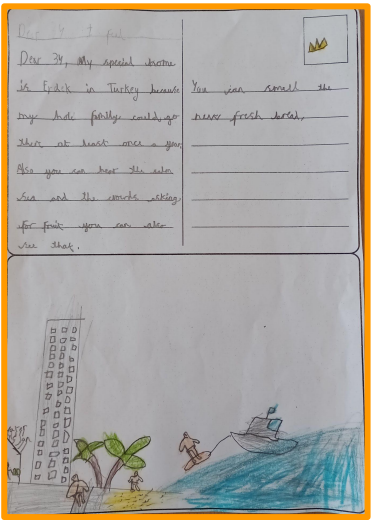 Dear 3Y, My special home
is Erdek in Turkey because
my hole family could go
there at least once a year.
Also you can hear the calm
sea and the crowds asking
for fruit you can also
see that.
You can smell the
never fresh bread,